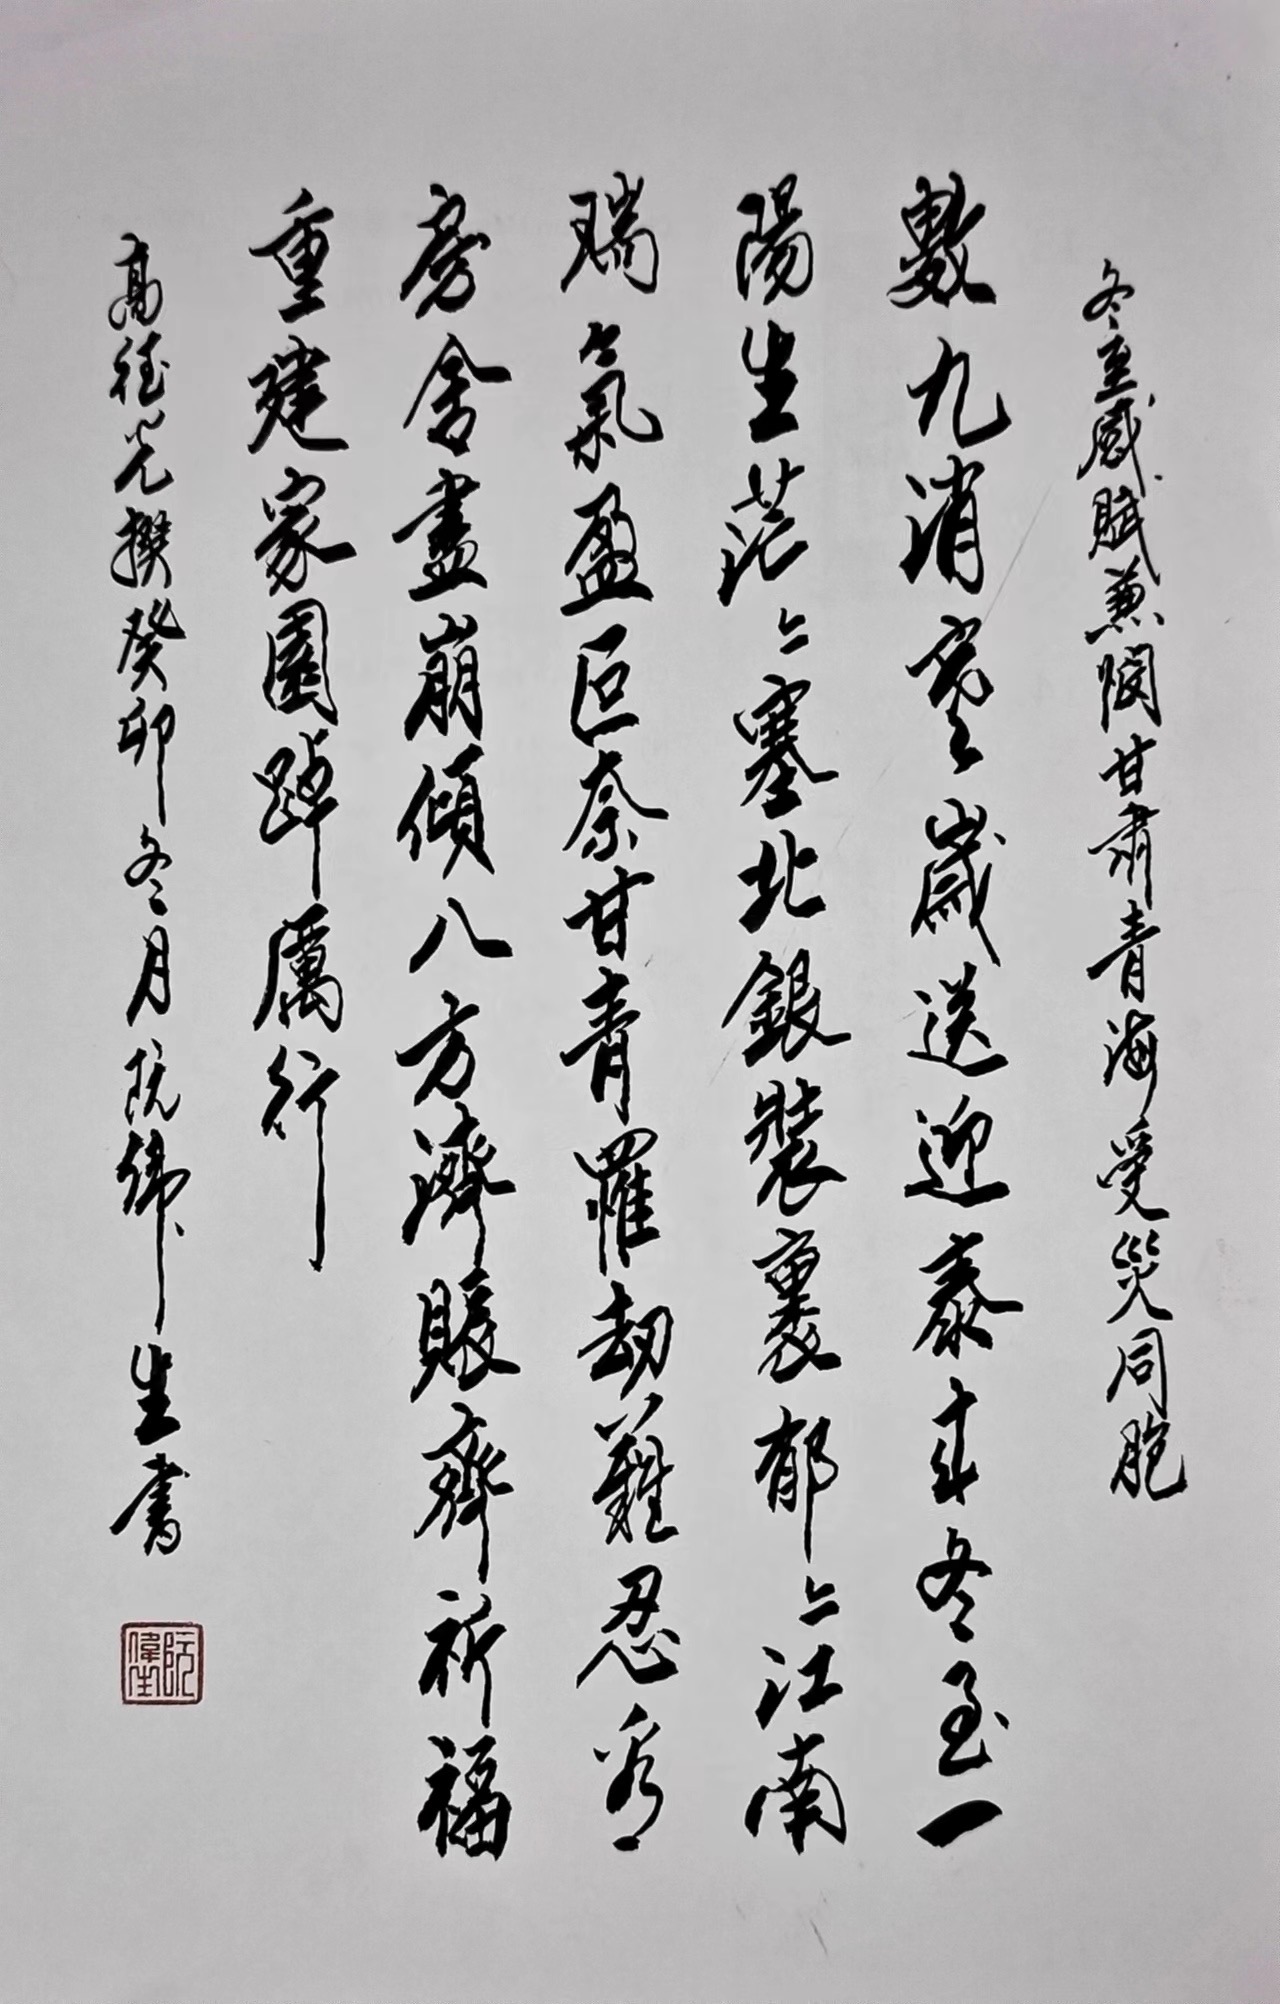 冬至感賦兼憫甘肅青海受災同胞
數九消寒歲送迎泰來冬至一
陽生茫茫塞北銀裝裹郁郁江南
瑞氣盈叵奈甘青罹劫難忍看
房舍盡崩傾八方濟賑齊祈福
重建家園踔厲行
高德光撰癸卯冬月阮偉生書
阮偉生